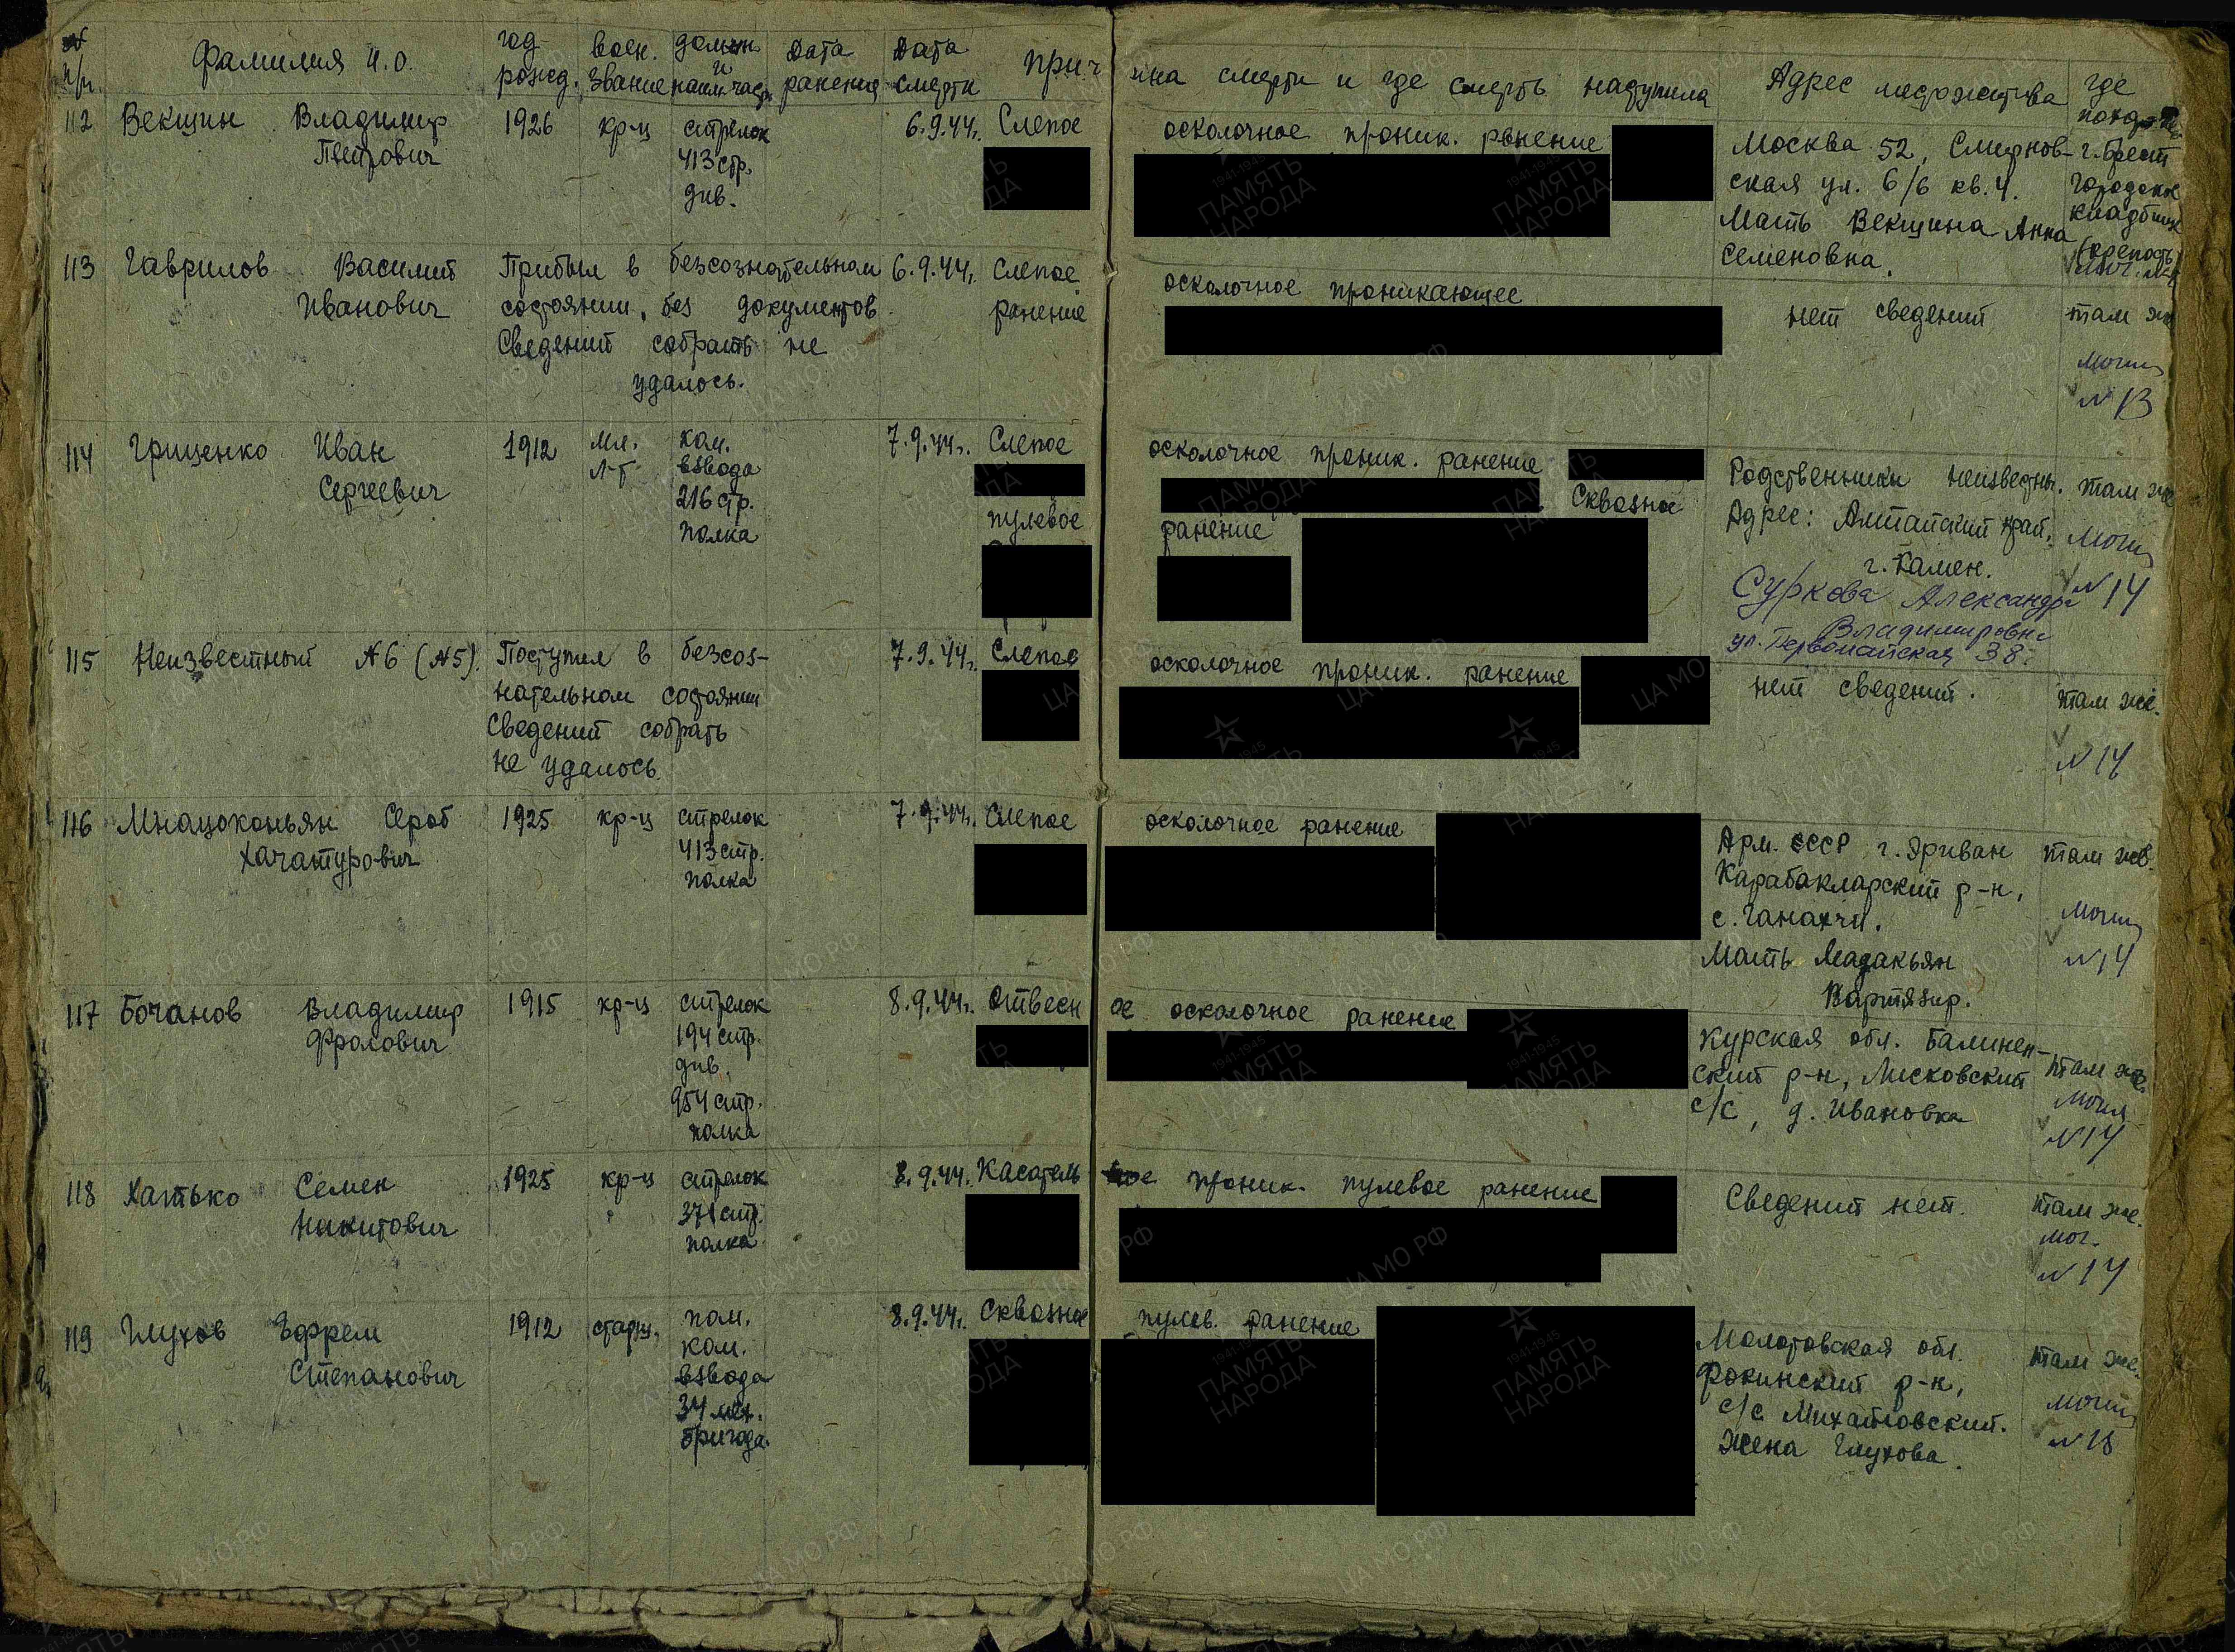 № п/п. Фамилия И.О. год рожд. воен. звание должн. и наим. части Дата ранения Дата смерти Причина смерти и где смерть наступила Адрес местожительства где
112 Векшин Владимир 1926 кр-ц стрелок 6.9.44г. Слепое осколочное проник. ранение Москва 52, Смирнов- г. Брест
Петрович 413 стр. ская ул. 6/6 кв. 4. городское
див. Мать Векшина Анна кладбище
Семеновна. (крепость)
113 Гаврилов Василий Прибыл в безсознательном 6.9.44г. Слепое осколочное проникающее
Иванович состоянии, без документов. ранение нет сведений там же
Сведений собрать не
удалось. могил
№ 13
114 Гриценко Иван 1912 мл. ком. 7.9.44г. Слепое осколочное проник. ранение
Сергеевич л-т взвода Родственники неизвестны. там же
216 стр. пулевое Сквозное Адрес: Алтайский край, могил
полка ранение г. Камен. № 14
Суркова Александра
Владимировна
ул. Первомайская 38.
115 Неизвестный №6 (№5). Поступил в безсоз- 7.9.44г. Слепое осколочное проник. ранение нет сведений. там же.
нательном состоянии
Сведений собрать № 14
не удалось.
116 Мнацоконьян Сероб 1925 кр-ц стрелок 7.9.44г. Слепое осколочное ранение Арм. СССР г. Эриван там же.
Хачатурович 413 стр. Карабакларский р-н,
полка с. Чанахчи. могил
Мать Мадакьян № 14
117 Бочанов Владимир 1915 кр-ц стрелок 8.9.44г. Отвесное осколочное ранение Курская обл.
Фролович 194 стр. ский р-н, Лисковский там же
див. с/с, д. Ивановка могил
954 стр. № 14
полка
118 Хатько Семен 1925 кр-ц стрелок 8.9.44г. Касательное проник. пулевое ранение Сведений нет. там же.
Никитович 371 стр. мог.
полка № 14
119 Глухов Ефрем 1912 старш. пом. 8.9.44г. Сквозное пулев. ранение Молотовская обл. там же.
Степанович ком. Фокинский р-н,
взвода с/с Михайловский. могил
34 бригада. Жена Глухова. № 15
ЦА МО РФ
1941-1945
ПАМЯТЬ
НАРОДА